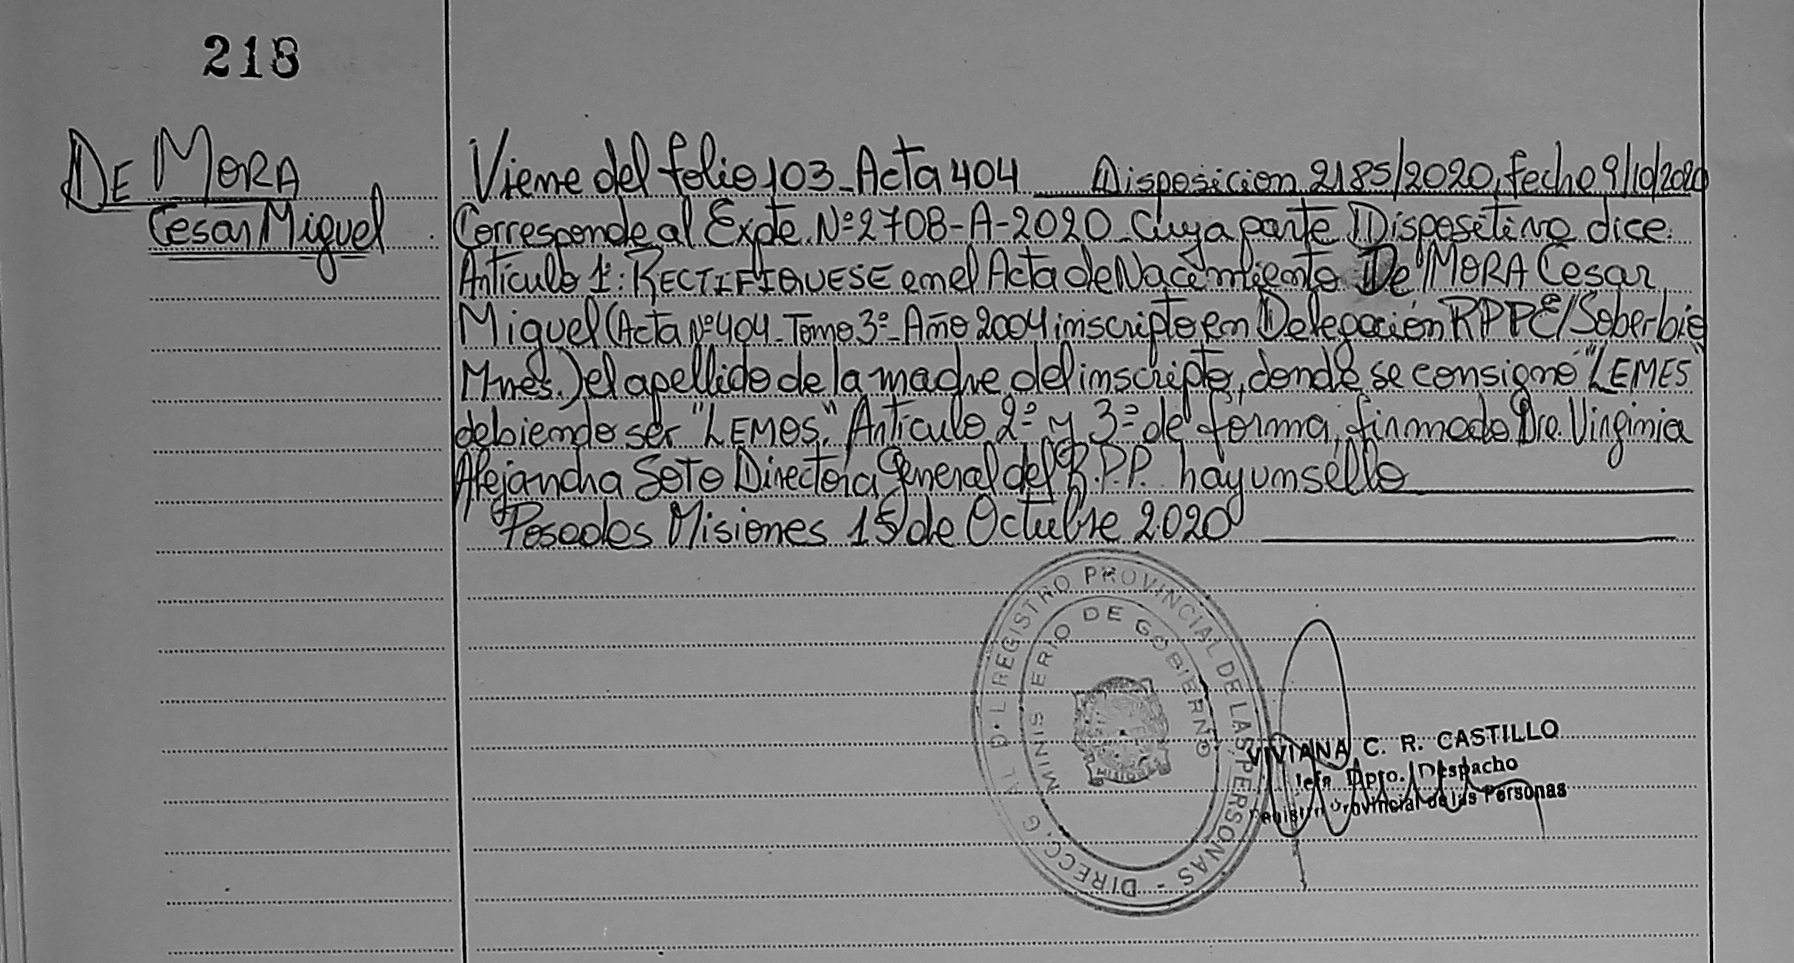 218
DE MORA
Cesar Miguel
Viene del folio 103_Acta 404 Disposicion 2185/2020, fecha 9/10/2020
Corresponde al Expte. Nº 2708-A-2020_Cuya parte Dispositiva dice:
Articulo 1º: RECTIFIQUESE en el Acta de Nacimiento De MORA Cesar
Miguel (Acta Nº 404_Tomo 3º_Año 2004 inscripto en Delegación RPPE/Soberbio
Mnes.) el apellido de la madre del inscripto, donde se consignó "LEMES"
debiendo ser "LEMOS". Articulo 2º y 3º de forma, firmado Dra. Virginia
Alejandra Soto Directora General del R.P.P. hay un sello
Posadas Misiones 15 de Octubre 2020
DIRECC. G AL D L REGISTRO PROVINCIAL DE LAS PERSONAS -
MINIS ERIO DE GOBIERNO
VIVIANA C. R. CASTILLO
Jefa Dpto. Despacho
Registro Provincial de las Personas